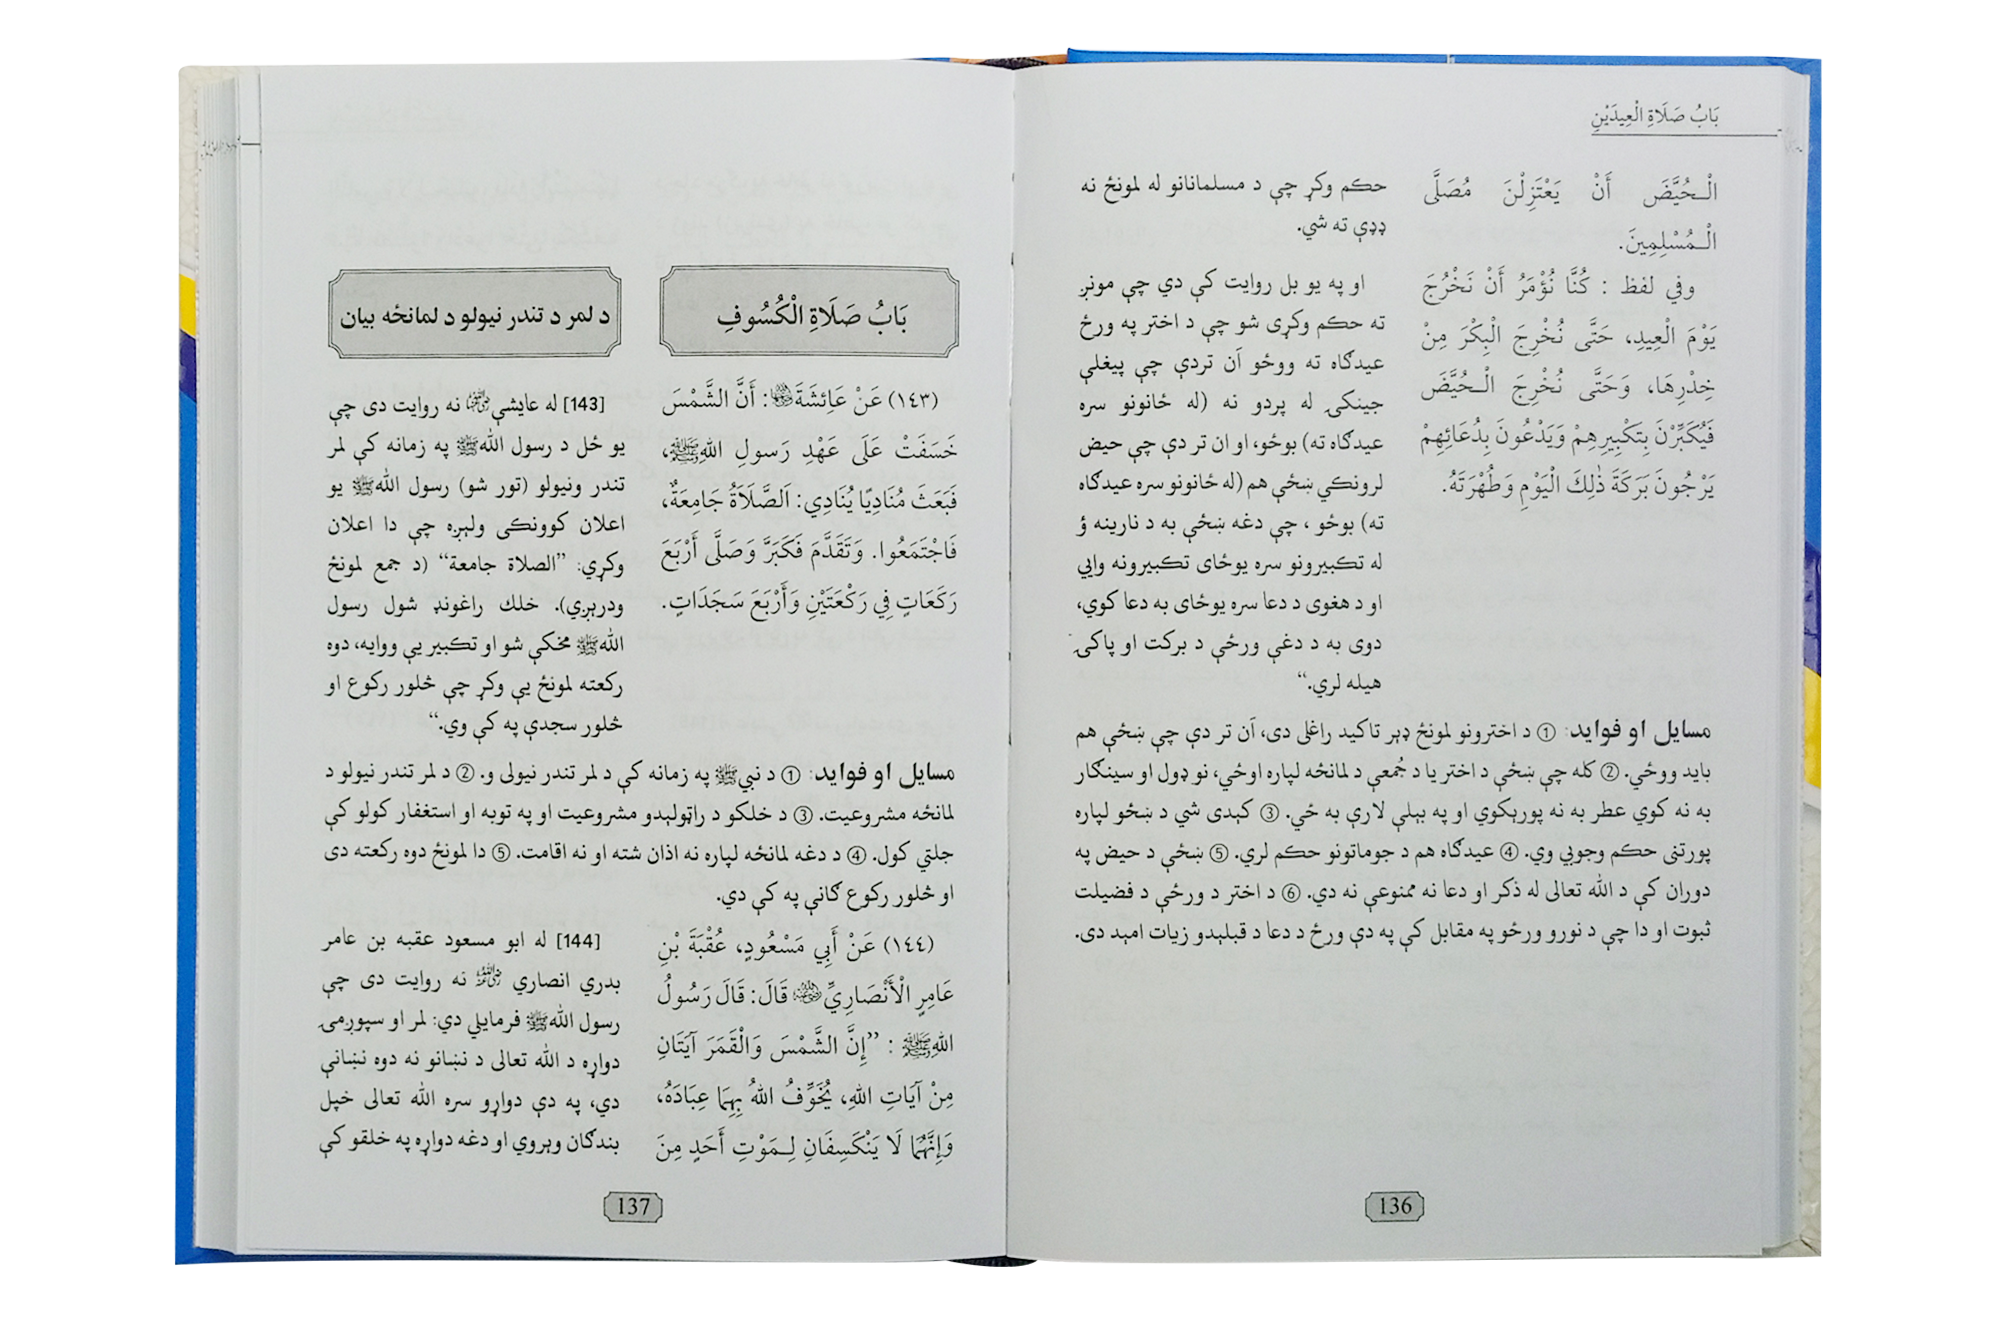 بَابُ صَلَاةِ الْعِيدَيْنِ
الْـحُيَّضَ أَنْ يَعْتَزِلْنَ مُصَلَّى
الْـمُسْلِمِينَ.
وفي لفظ : كُنَّا نُؤْمَرُ أَنْ نَخْرُجَ
يَوْمَ الْعِيدِ، حَتَّى نُخْرِجَ الْبِكْرَ مِنْ
خِدْرِهَا، وَحَتَّى نُخْرِجَ الْـحُيَّضَ
فَيُكَبِّرْنَ بِتَكْبِيرِهِمْ وَيَدْعُونَ بِدُعَائِهِمْ
يَرْجُونَ بَرَكَةَ ذٰلِكَ الْيَوْمِ وَطُهْرَتَهُ.
حکم وکړ چې د مسلمانانو له لمونځ نه
ډډې ته شي.
او په يو بل روايت کې دي چې مونږ
ته حکم وکړی شو چې د اختر په ورځ
عيدګاه ته ووځو آن تردې چې پيغلې
جينکۍ له پردو نه (له ځانونو سره
عيدګاه ته) بوځو، او ان تر دې چې حيض
لرونکي ښځې هم (له ځانونو سره عيدګاه
ته) بوځو ، چې دغه ښځې به د نارينه ؤ
له تکبيرونو سره يوځای تکبيرونه وايي
او د هغوی د دعا سره يوځای به دعا کوي،
دوی به د دغې ورځې د برکت او پاکۍ
هيله لري.“
مسايل او فوايد: ① د اخترونو لمونځ ډېر تاکيد راغلی دی، آن تر دې چې ښځې هم
بايد ووځي. ② کله چې ښځې د اختر يا د جُمعې د لمانځه لپاره اوځي، نو ډول او سينګار
به نه کوي عطر به نه پورېکوي او په بېلې لارې به ځي. ③ کېدی شي د ښځو لپاره
پورتنی حکم وجوبي وي. ④ عيدګاه هم د جوماتونو حکم لري. ⑤ ښځې د حيض په
دوران کې د الله تعالی له ذکر او دعا نه ممنوعې نه دي. ⑥ د اختر د ورځې د فضيلت
ثبوت او دا چې د نورو ورځو په مقابل کې په دې ورځ د دعا د قبلېدو زيات امېد دی.
136
بَابُ صَلَاةِ الْكُسُوفِ
د لمر د تندر نيولو د لمانځه بيان
(١٤٣) عَنْ عَائِشَةَ رضي الله عنها: أَنَّ الشَّمْسَ
خَسَفَتْ عَلَى عَهْدِ رَسولِ اللهِ ﷺ،
فَبَعَثَ مُنَادِيًا يُنَادِي: اَلصَّلَاةُ جَامِعَةٌ،
فَاجْتَمَعُوا. وَتَقَدَّمَ فَكَبَرَّ وَصَلَّى أَرْبَعَ
رَكَعَاتٍ فِي رَكْعَتَيْنِ وَأَرْبَعَ سَجَدَاتٍ.
[143] له عايشې رضي الله عنها نه روايت دی چې
يو ځل د رسول الله ﷺ په زمانه کې لمر
تندر ونيولو (تور شو) رسول الله ﷺ يو
اعلان کوونکی ولېږه چې دا اعلان
وکړي: ”الصلاة جامعة“ (د جمع لمونځ
ودرېږي). خلك راغونډ شول رسول
الله ﷺ مخکې شو او تکبير يې ووايه، دوه
رکعته لمونځ يې وکړ چې څلور رکوع او
څلور سجدې په کې وي.“
مسايل او فوايد: ① د نبي ﷺ په زمانه کې د لمر تندر نيولی و. ② د لمر تندر نيولو د
لمانځه مشروعيت. ③ د خلکو د راټولېدو مشروعيت او په توبه او استغفار کولو کې
جلتي کول. ④ د دغه لمانځه لپاره نه اذان شته او نه اقامت. ⑤ دا لمونځ دوه رکعته دی
او څلور رکوع ګانې په کې دي.
(١٤٤) عَنْ أَبِي مَسْعُودٍ، عُقْبَةَ بْنِ
عَامِرٍ الْأَنْصَارِيِّ رضي الله عنه قَالَ: قَالَ رَسُولُ
اللهِ ﷺ : ”إِنَّ الشَّمْسَ وَالْقَمَرَ آيَتَانِ
مِنْ آيَاتِ اللهِ، يُخَوِّفُ اللهُ بِهِمَا عِبَادَهُ،
وَإِنَّهُمَا لَا يَنْكَسِفَانِ لِـمَوْتِ أَحَدٍ مِنَ
[144] له ابو مسعود عقبه بن عامر
بدري انصاري رضي الله عنه نه روايت دی چې
رسول الله ﷺ فرمايلي دي: لمر او سپوږمۍ
دواړه د الله تعالی د نښانو نه دوه نښانې
دي، په دې دواړو سره الله تعالی خپل
بندګان وېروي او دغه دواړه په خلقو کې
137